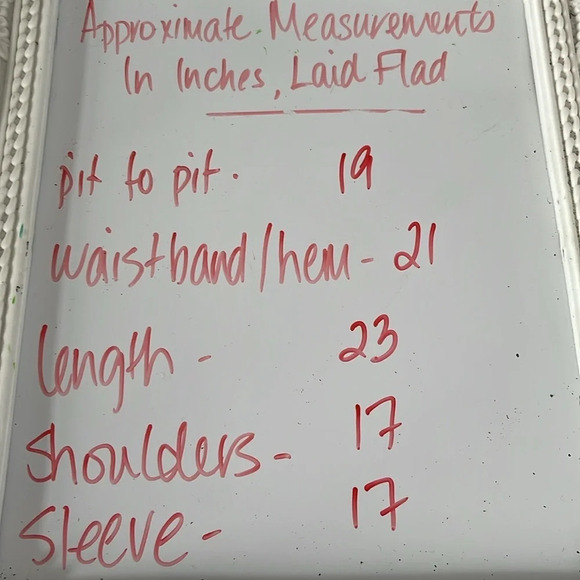 Approximate Measurements
In Inches, Laid Flad
pit to pit. 19
waistband/hem - 21
length - 23
shoulders - 17
Sleeve - 17